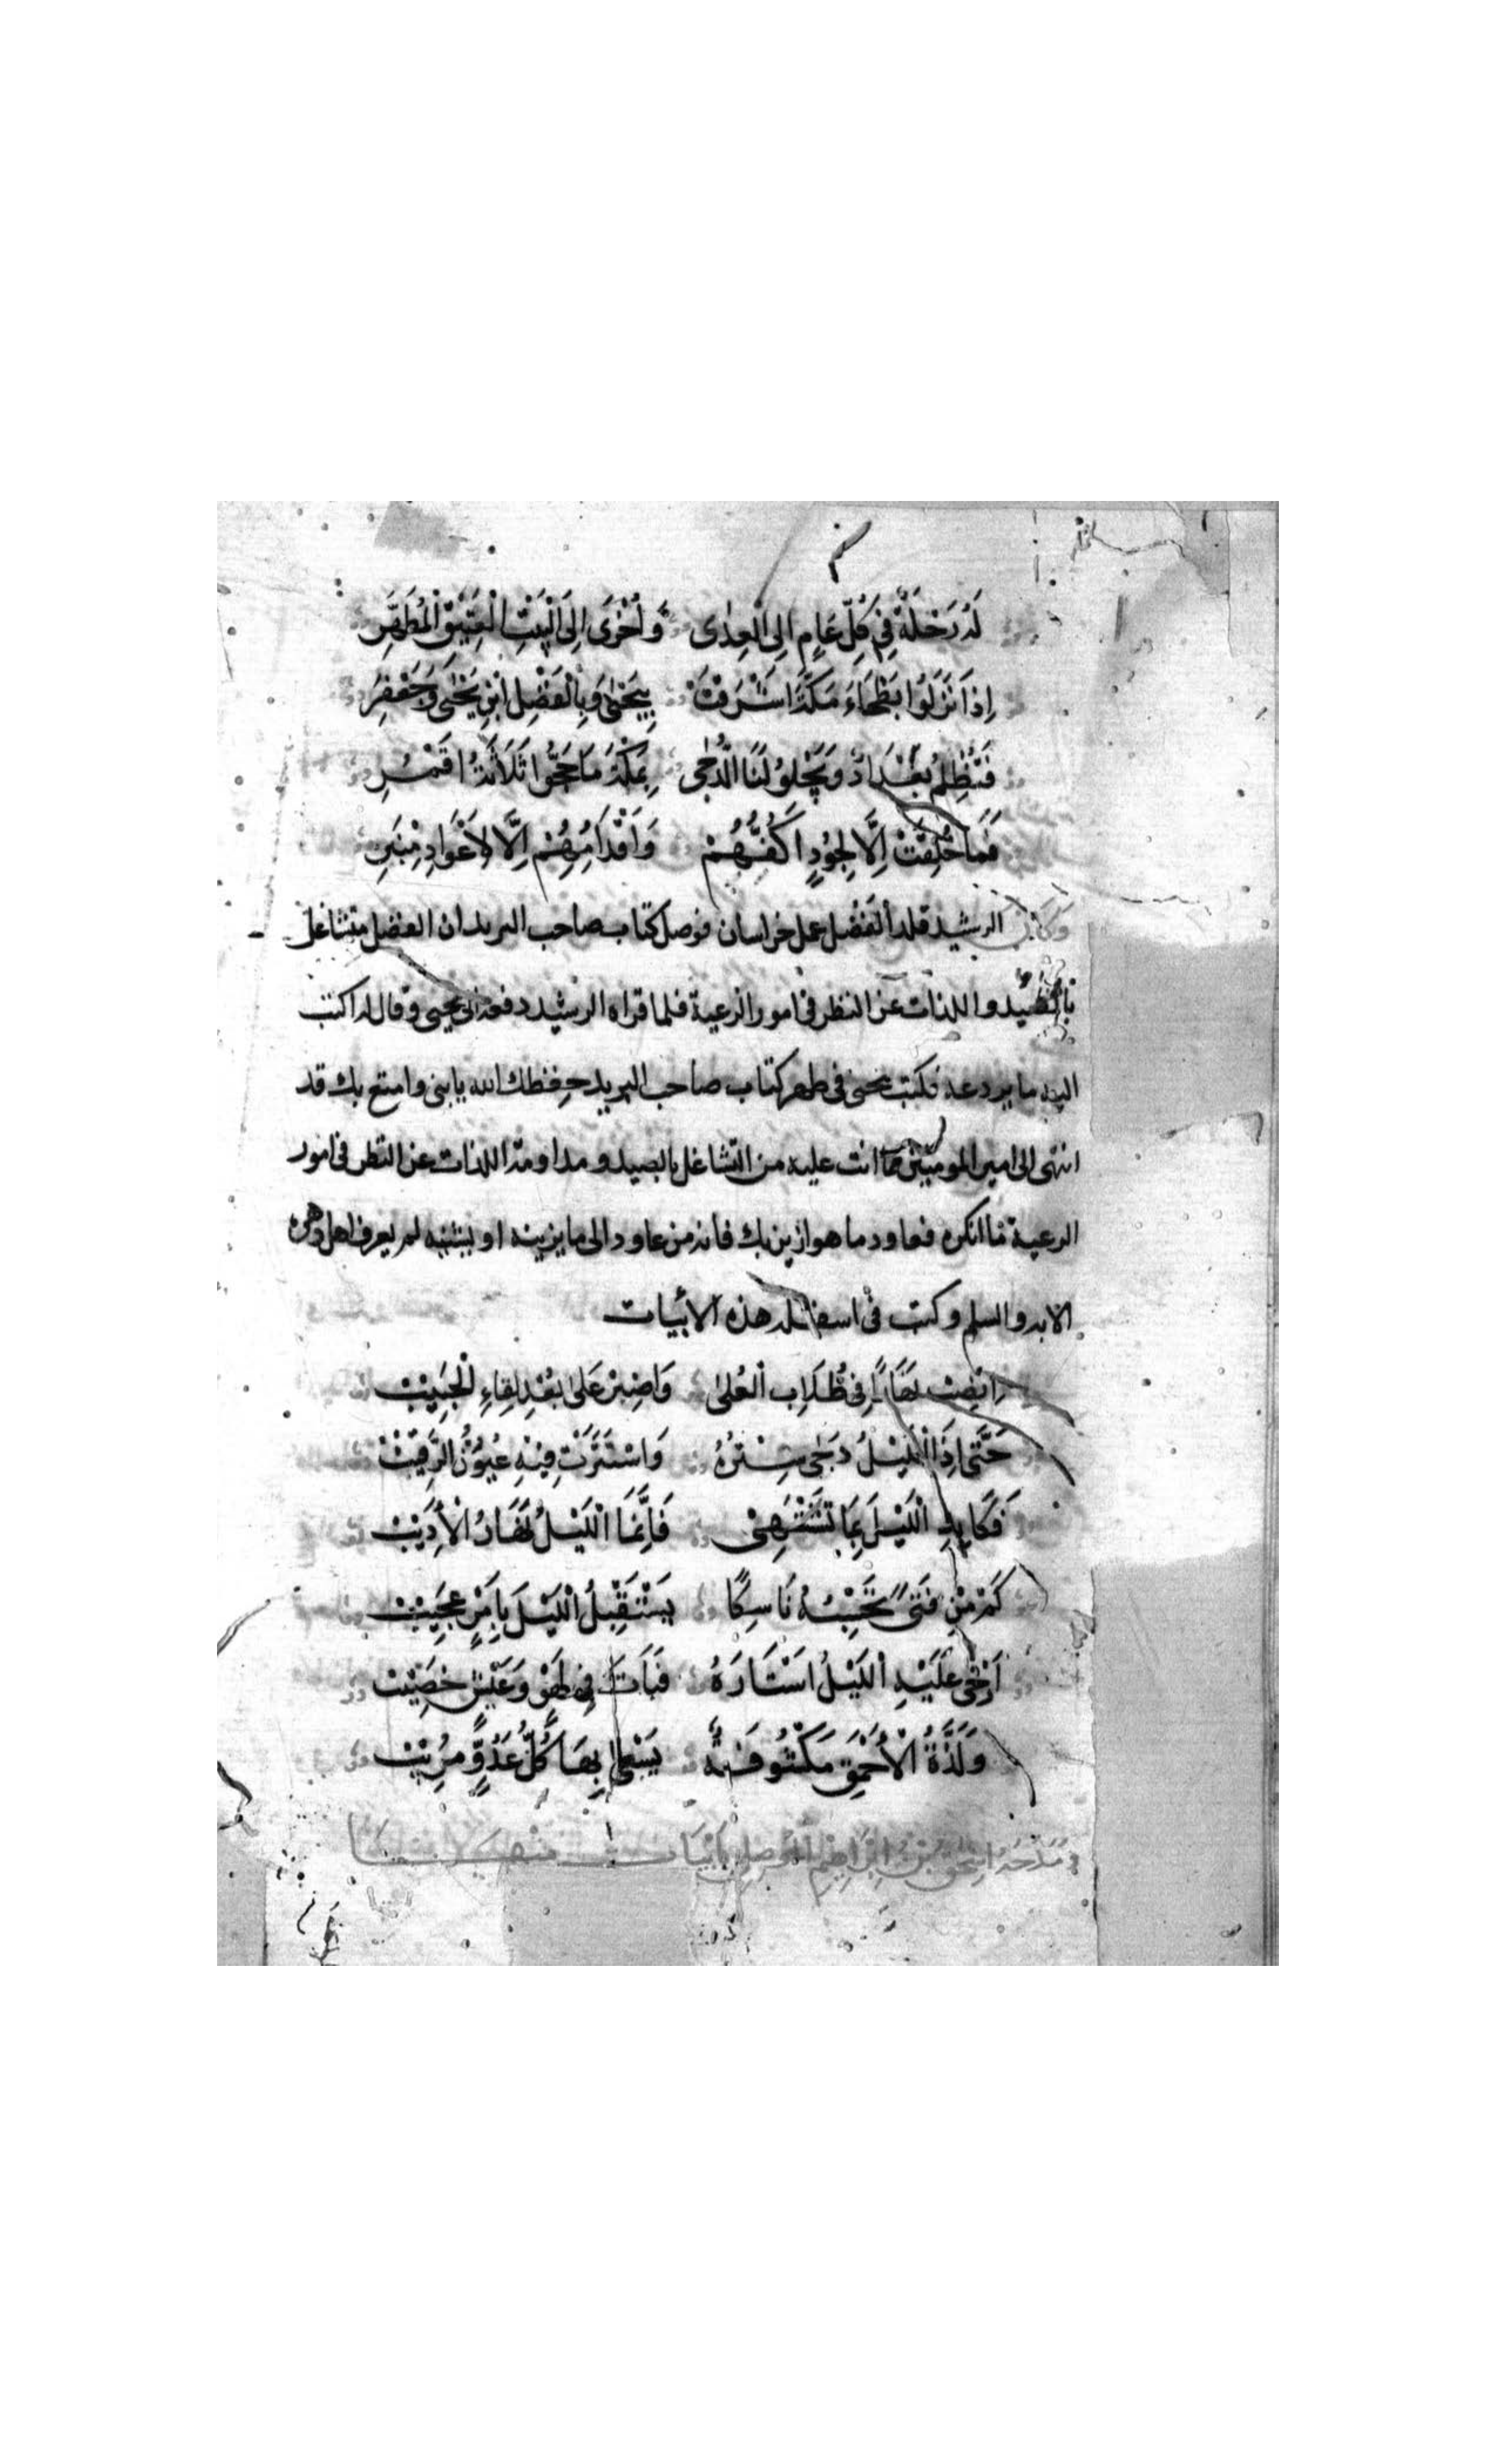 لَهُ رَحْلَةٌ فِي كُلِّ عَامٍ إِلَى الْعِدَى وَأُخْرَى إِلَى الْبَيْتِ الْعَتِيْقِ الْمُطَهَّرِ
إِذَا نَزَلُوا بَطْحَاءَ مَكَّةَ اشْرَقَتْ بِيَحْيَى وَبِالْفَضْلِ ابْنِ يَحْيَى وَجَعْفَرِ
فَتُظْلِمُ بَغْدَادُ وَيَجْلُو لَنَا الدُّجَى بِمَكَّةَ مَا حَجُّوا ثَلَاثَةُ اقْمُرِ
فَمَا خُلِقَتْ إِلَّا لِجُودٍ اكُفُّهُمْ وَاقْدَامُهُمْ إِلَّا لِأَعْوَادِ مِنْبَرِ
وَكَانَ الرشيد قلد الْفَضْل عمل خراسان فوصل كتاب صاحب البريد ان الفضل متشاغل
بالصَّيد واللذات عن النظر في امور الرعية فلما قراه الرشيد دفعه الى يحيى وقال له اكتب
اليه ما يردعه فكتب يحيى في ظهر كتاب صاحب البريد حفظك الله يا بنى وامتع بك قد
انتهى الى امير المومنين مما انت عليه من التشاغل بالصيد ومداومة اللذات عن النظر في امور
الرعية ما انكره فعاود ما هو ازين بك فانه من عاود الى ما يزينه او يشينه لم يعرفه اهل دهره
الا به والسلم وكتب في اسفله هذه الأبيات
انْصِبْ نَهَارًا فِي طُلَّابِ الْعُلَى وَاصْبِرْ عَلَى بُعْدِ لِقَاءِ الْحَبِيْبْ
حَتَّى إِذَا اللَّيْلُ دَجَى سِتْرُهُ وَاسْتَتَرَتْ فِيْهِ عُيُوْنُ الرَّقِيْبْ
فَكَابِدِ اللَّيْلَ بِمَا تَشْتَهِىْ فَإِنَّمَا اللَّيْلُ نَهَارُ الْأَدِيْبْ
كَمْ مِنْ فَتىً تَحْسِبُهُ نَاسِكًا يَسْتَقْبِلُ اللَّيْلَ بِأَمْرٍ عَجِيْبْ
أَرْخَى عَلَيْهِ اللَّيْلُ اسْتَارَهُ فَبَاتَ فِي لَهْوٍ وَعَيْشٍ خَصِيْبْ
وَلَذَّةُ الْأَحْمَقِ مَكْشُوفَةٌ يَسْعَى بِهَا كُلُّ عَدُوٍّ مُرِيْبْ
وَمَدَحَهُ اسْحٰقُ بْنُ ابْرَاهِيْمَ الْمَوْصِلِي بِأَبْيَات